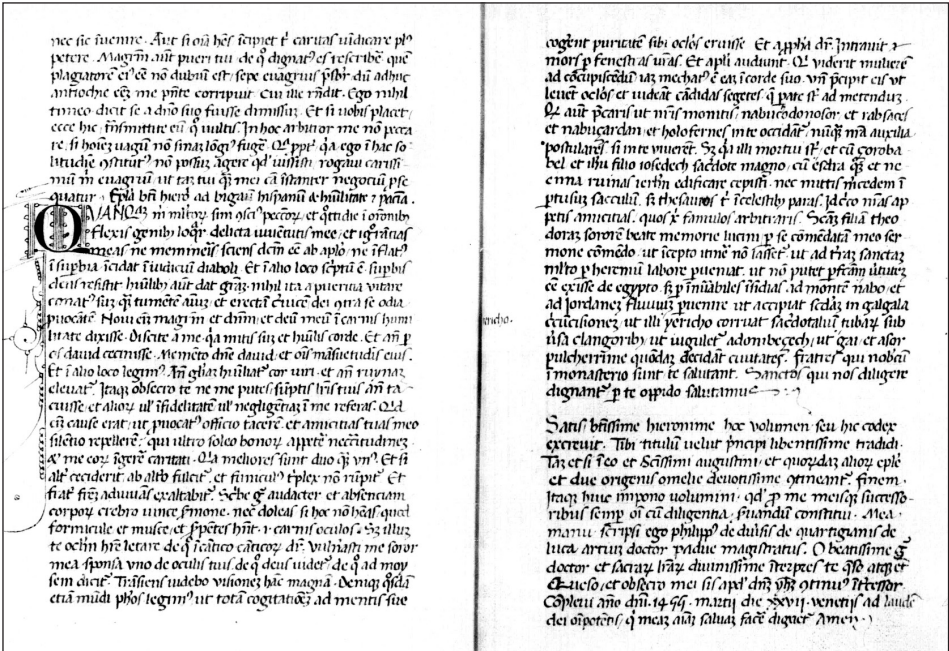 nec sic invenire. Aut si oĩa hẽs ĩcipiet tˀ caritas vĩdicare plꝰ
petere. Magnũ aũt pueri tui de qͦ dignatꝰ es rescribẽ. quẽ
plagiatorẽ eiꝰ eẽ nõ dubiũ est. sepe evagrius p̃sbr̃ dũ adhuc
antiochie eẽ me p̃nte corripuit. Cui ille rñdit. Ego nihil
timeo. dicit se a dño suo fuisse dimissũ. Et si vobis placet.
ecce hic. trãsmittite eũ qͦ vultis. In hoc arbitror me nõ pecca
re. si hoĩez vagũ nõ sinaz longꝰ fugẽ. Qa ego ĩ hac so
litudĩe cõstitutꝰ nõ possuz agere qd̃ iussisti. rogavi carissi
mũ m̃ evagriũ. ut taz tui qz mei cã ĩstanter negociũ p̃se
quatur. Epl̃a bt̃i hiero ad bigauũ hispanũ de hũilitate
QVANQz m̃ mĩtoꝝ sim cõsciꝰ pecctoꝝ. et qͦttidie ĩ orõnibꝰ
flexis genibꝰ loqr̃. delicta iuvẽtutis mee et igr̃ãtias
meas ne memineris. sciens dcm̃ eẽ ab aplõ. ne ĩflatꝰ
ĩ supbia. ĩcidat ĩ iudiciũ diaboli. Et ĩ alio loco scptũ ẽ. supbis
deus resistit. hũilibꝰ aũt dat gr̃az. nihil ita a pueritia vitare
conatꝰ suz. qz tumẽtẽ aĩuz. et erectã cervicẽ dei cõtra se odia
pvocãtẽ. Novi eĩz magr̃m et dñm. et deũ meũ ĩ carnis humi
litate dixisse. Discite a me. qa mitis suz et hũilis corde. Et añ p
os david cecinisse. Memẽto dñe david. et oĩs mãsuetudĩs eiꝰ.
Et ĩ alio loco legimꝰ. Añ gl̃iaz hũiliatˀ cor viri. et añ ruynaz
elevatˀ. Itaqz obsecro te ne me putes. suptis lr̃is tuis añ ta
cuisse. et alioꝝ ul̃ ĩfidelitatẽ ul̃ negligẽtiaz ĩ me referas. Qd̃
eĩ cause erat. ut pvocatꝰ officio tacerẽ. et amicitias tuas meo
silẽtio repellerẽ. qui ultro soleo bonoꝝ appetẽ necc̃itudines.
& me eoꝝ ĩgerẽ caritati. Qa meliores sunt duo qz unꝰ. Et si
altˀ ceciderit. ab alto fulcitˀ. et funiculꝰ tˀplex nõ rũpitˀ. Et
fratˀ fr̃ez adiuvãs exaltabitˀ. Scˀbe gͦ audacter. et absenciam
corpoꝝ crebro vince sˀmone. nec doleas si hoc nõ hẽas. quod
formicule et musce et sˀpẽtes hñt. i. carnis oculos. Sz illuz
te oclm̃ hr̃e letare. de qͦ ĩ cãtico cãticoꝝ drˀ. Vulnˀasti me soror
mea sponsa uno de oculis tuis. de qͦ deus videtˀ. de qͦ ad moy
sem dicitˀ. Trãsiens videbo visionez hãc magnã. Deniqz qͦsdã
etiã mũdi phõs legimꝰ. ut totã cogitatiõez ad mentis sue
cogẽnt puritatẽ. sibi oclõs eruisse. Et a pr̃pha drˀ. Intravit
mors p fenestras vr̃as. Et apl̃i audiunt. Qi viderit mulierẽ
ad cõcupiscẽdũ iaz mechatꝰ ẽ eaz ĩ corde suo. Vñ pˀcipit eis ut
levẽt oclõs et videãt cãdidas segetes. qͥ pate st̃ ad metenduz.
Qi aũt pˀcaris ut nr̃is monitis. nabucõdonosor et rabsaces
et nabuçardan. et holofernes in te occidãtˀ. nũqz nr̃a auxilia
postularesˀ. si in te viverẽt. Sz qa illi mortui st̃. et cũ çoroba
bel et ihũ filio iosedech sacˀdote magno. et cũ esdra qz et ne
emia ruinas ierlm̃ edificare cepisti. nec mittis mˀcedem ĩ
ptusuz sacculũ. sz thesauros tˀ ĩ celestibꝰ paras. Idcõ nr̃as ap
petis amicitias. quos xp̃i famulos arbitraris. Scãz filiã theo
doraz sororẽ beate memorie lucini p se cõmẽdatã meo ser
mone cõmẽdo. ut ĩcepto itˀe nõ lassetˀ. ut ad tˀraz sanctaz
mlˀto p heremũ labore pveniat. ut nõ putet pfectã virtutẽ
eẽ exisse de egypto. sz p innũabiles ĩsidias. ad montẽ nabo et
ad iordanez fluviuz pvenire. ut accipiat scˀdaz in galgala
cĩcũcisionez. ut illi yericho corruat sacˀdotaliũ tubaꝝ sub
vˀsa clangoribꝰ. ut iuguletˀ adonibeçech. ut gai. et asor
pulcherrime quõdaz decidant civitates. Fratres qui nobcũ
ĩ monasterio sunt te salutant. Sanctos qui nos diligere
dignantˀ p te oppido salutamus
ericho.
Satis btĩssime hieronime hoc volumen seu hic codex
excrevit. Tibi titulũ velut pˀncipi libentissime tradidi.
Taz et si ĩ eo et Sctĩssimi augustini. et quorũdaz alioꝝ epl̃e
et due origenis omelie devotissime cõtineantˀ. finem.
Itaqz huic impono volumini. qd̃ p me meisqz successo-
ribus semp oĩ cũ diligentia sˀvandũ constitui. Mea.
manu. scripsi ego philippꝰ de dulfis de quartigianis de
luca. artiuz doctor padue magistratus. O beatissime gͦ
doctor et sacraꝝ lr̃aꝝ divinissime ĩterpˀes te qͦso atqz etˀ
Queso. et obsecro mei sis apd̃ dñz yhz cõtinuꝰ ĩtˀcessor.
Cõplevi año dñi. 1455. martii die xxvii. venetijs ad laudẽ
dei oĩpotẽtis. qi meaz aĩaz salvaz facẽ dignetˀ Amen.